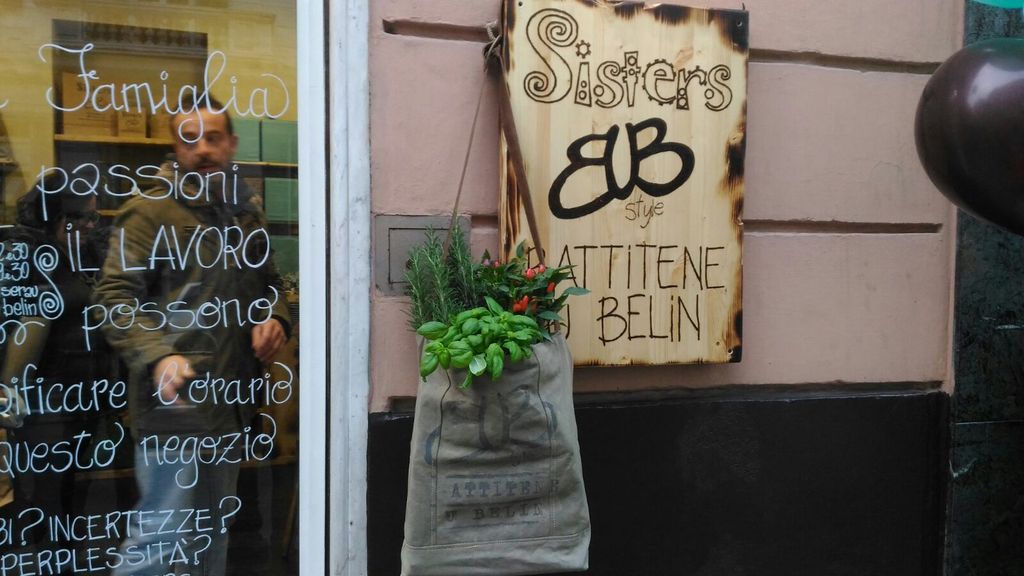 Famiglia
passioni
iL LAVORO
possono
ificare l'orario
questo negozio
BI? INCERTEZZE?
PERPLESSITÀ?
serau
belin
Sisters
BB
style
ATTITENE
U BELIN
ATTITENE
U BELIN